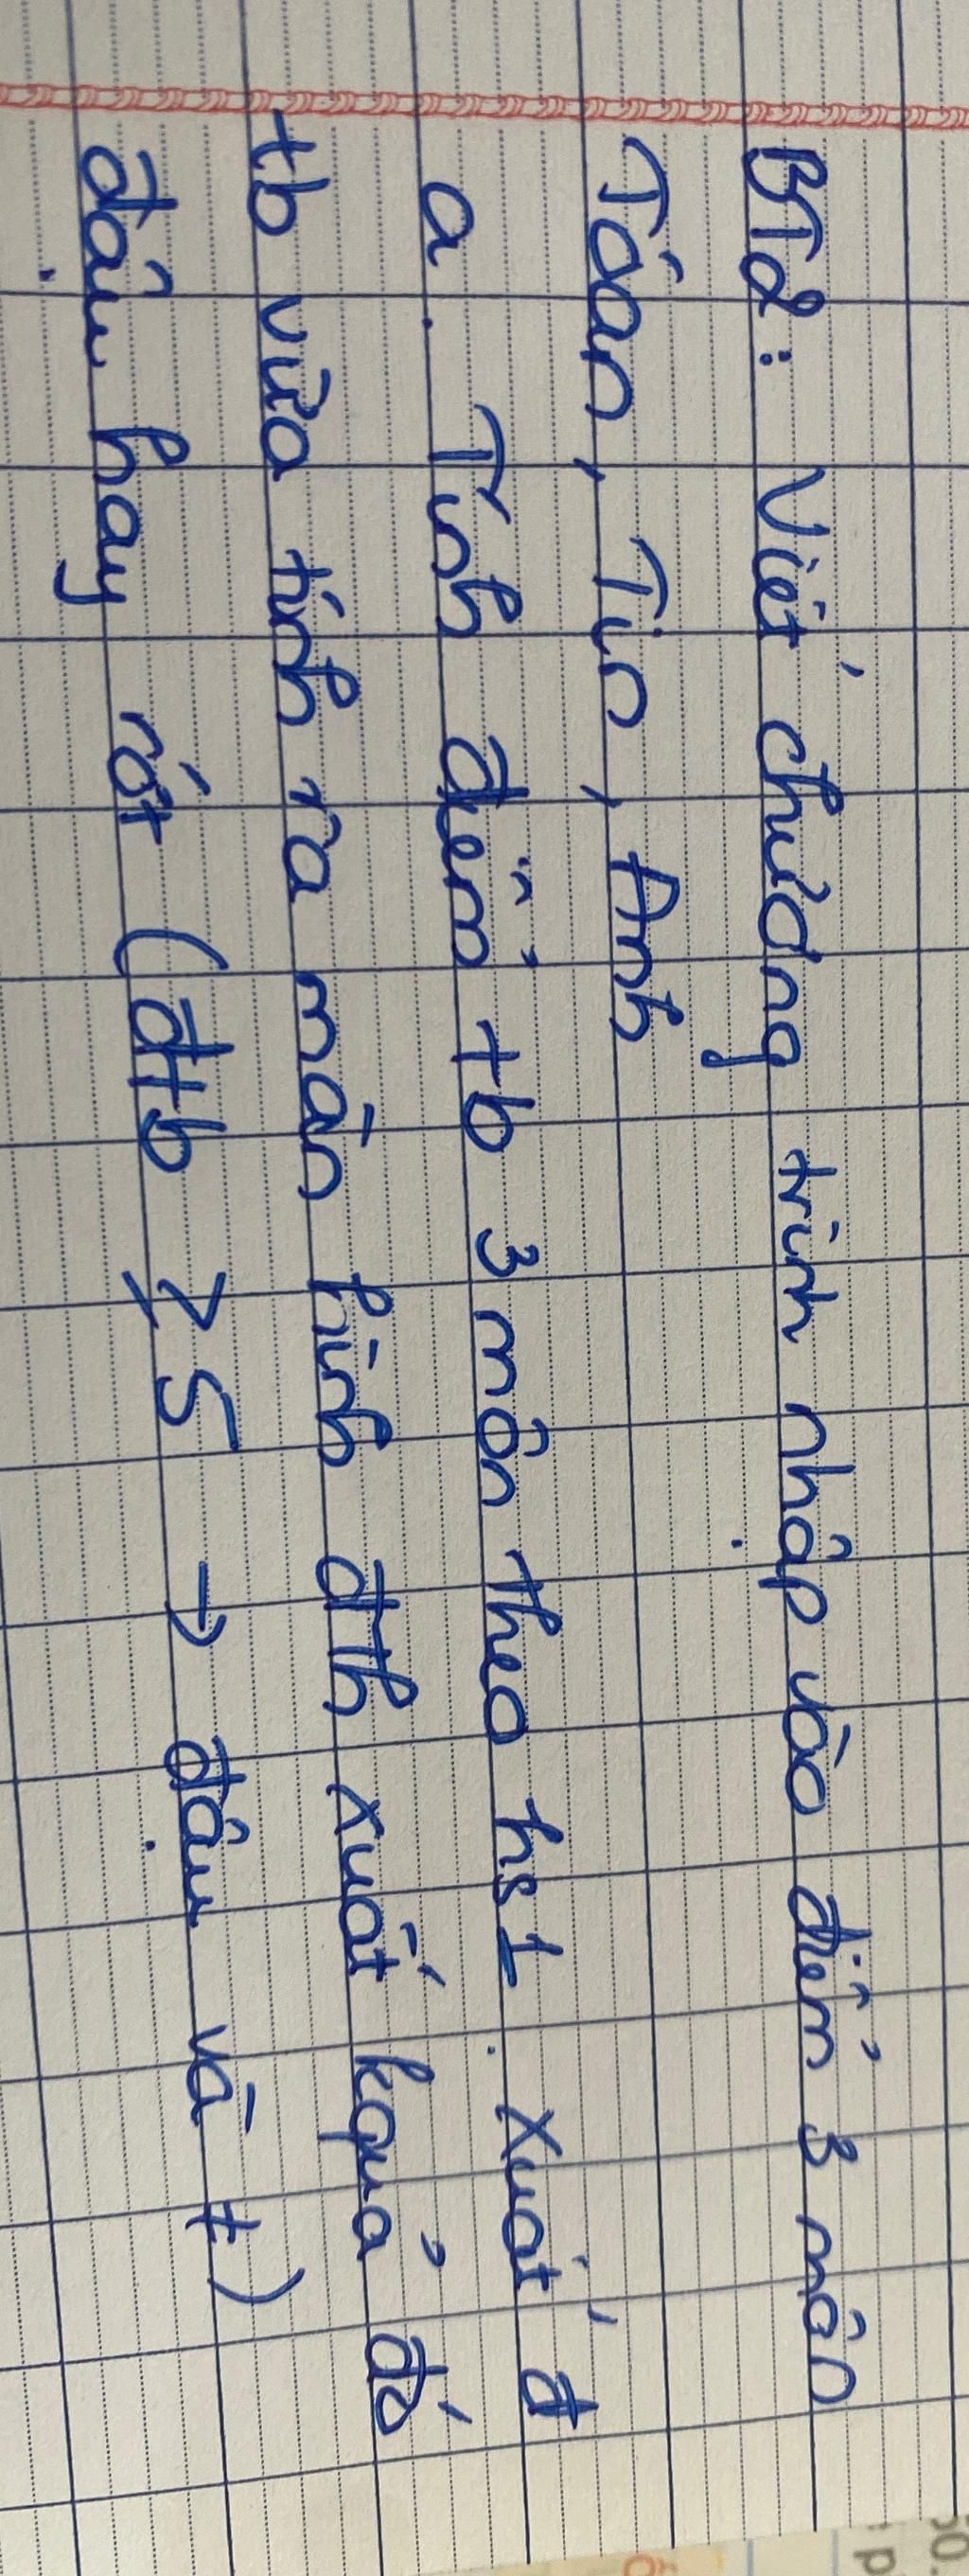 BT2: Viết chương trình nhập vào điểm 3 môn
Toán, Tin, Anh
a. Tính điểm tb 3 môn theo hs1. Xuất đ
tb vừa tính ra màn hình đth xuất kquả đó
đậu hay rớt (đtb ≥ 5 → đậu và ≠)